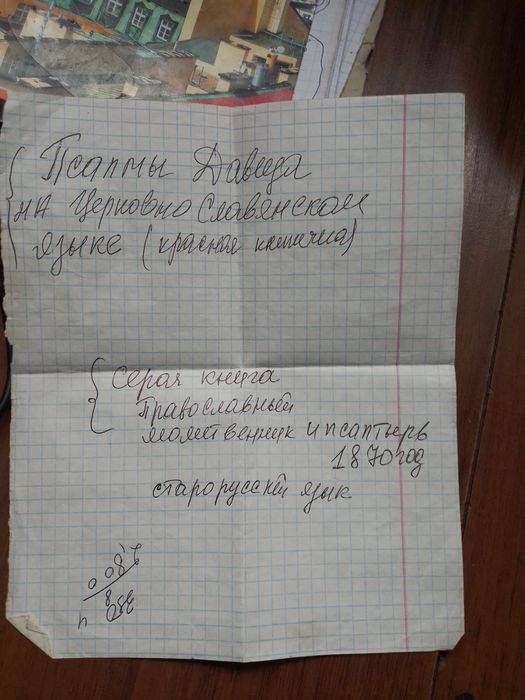 Псалмы Давида
на Церковно Славянском
языке (красная книжица)
серая книга
Православный
молитвенник и псалтырь
1870 год
старорусский язык